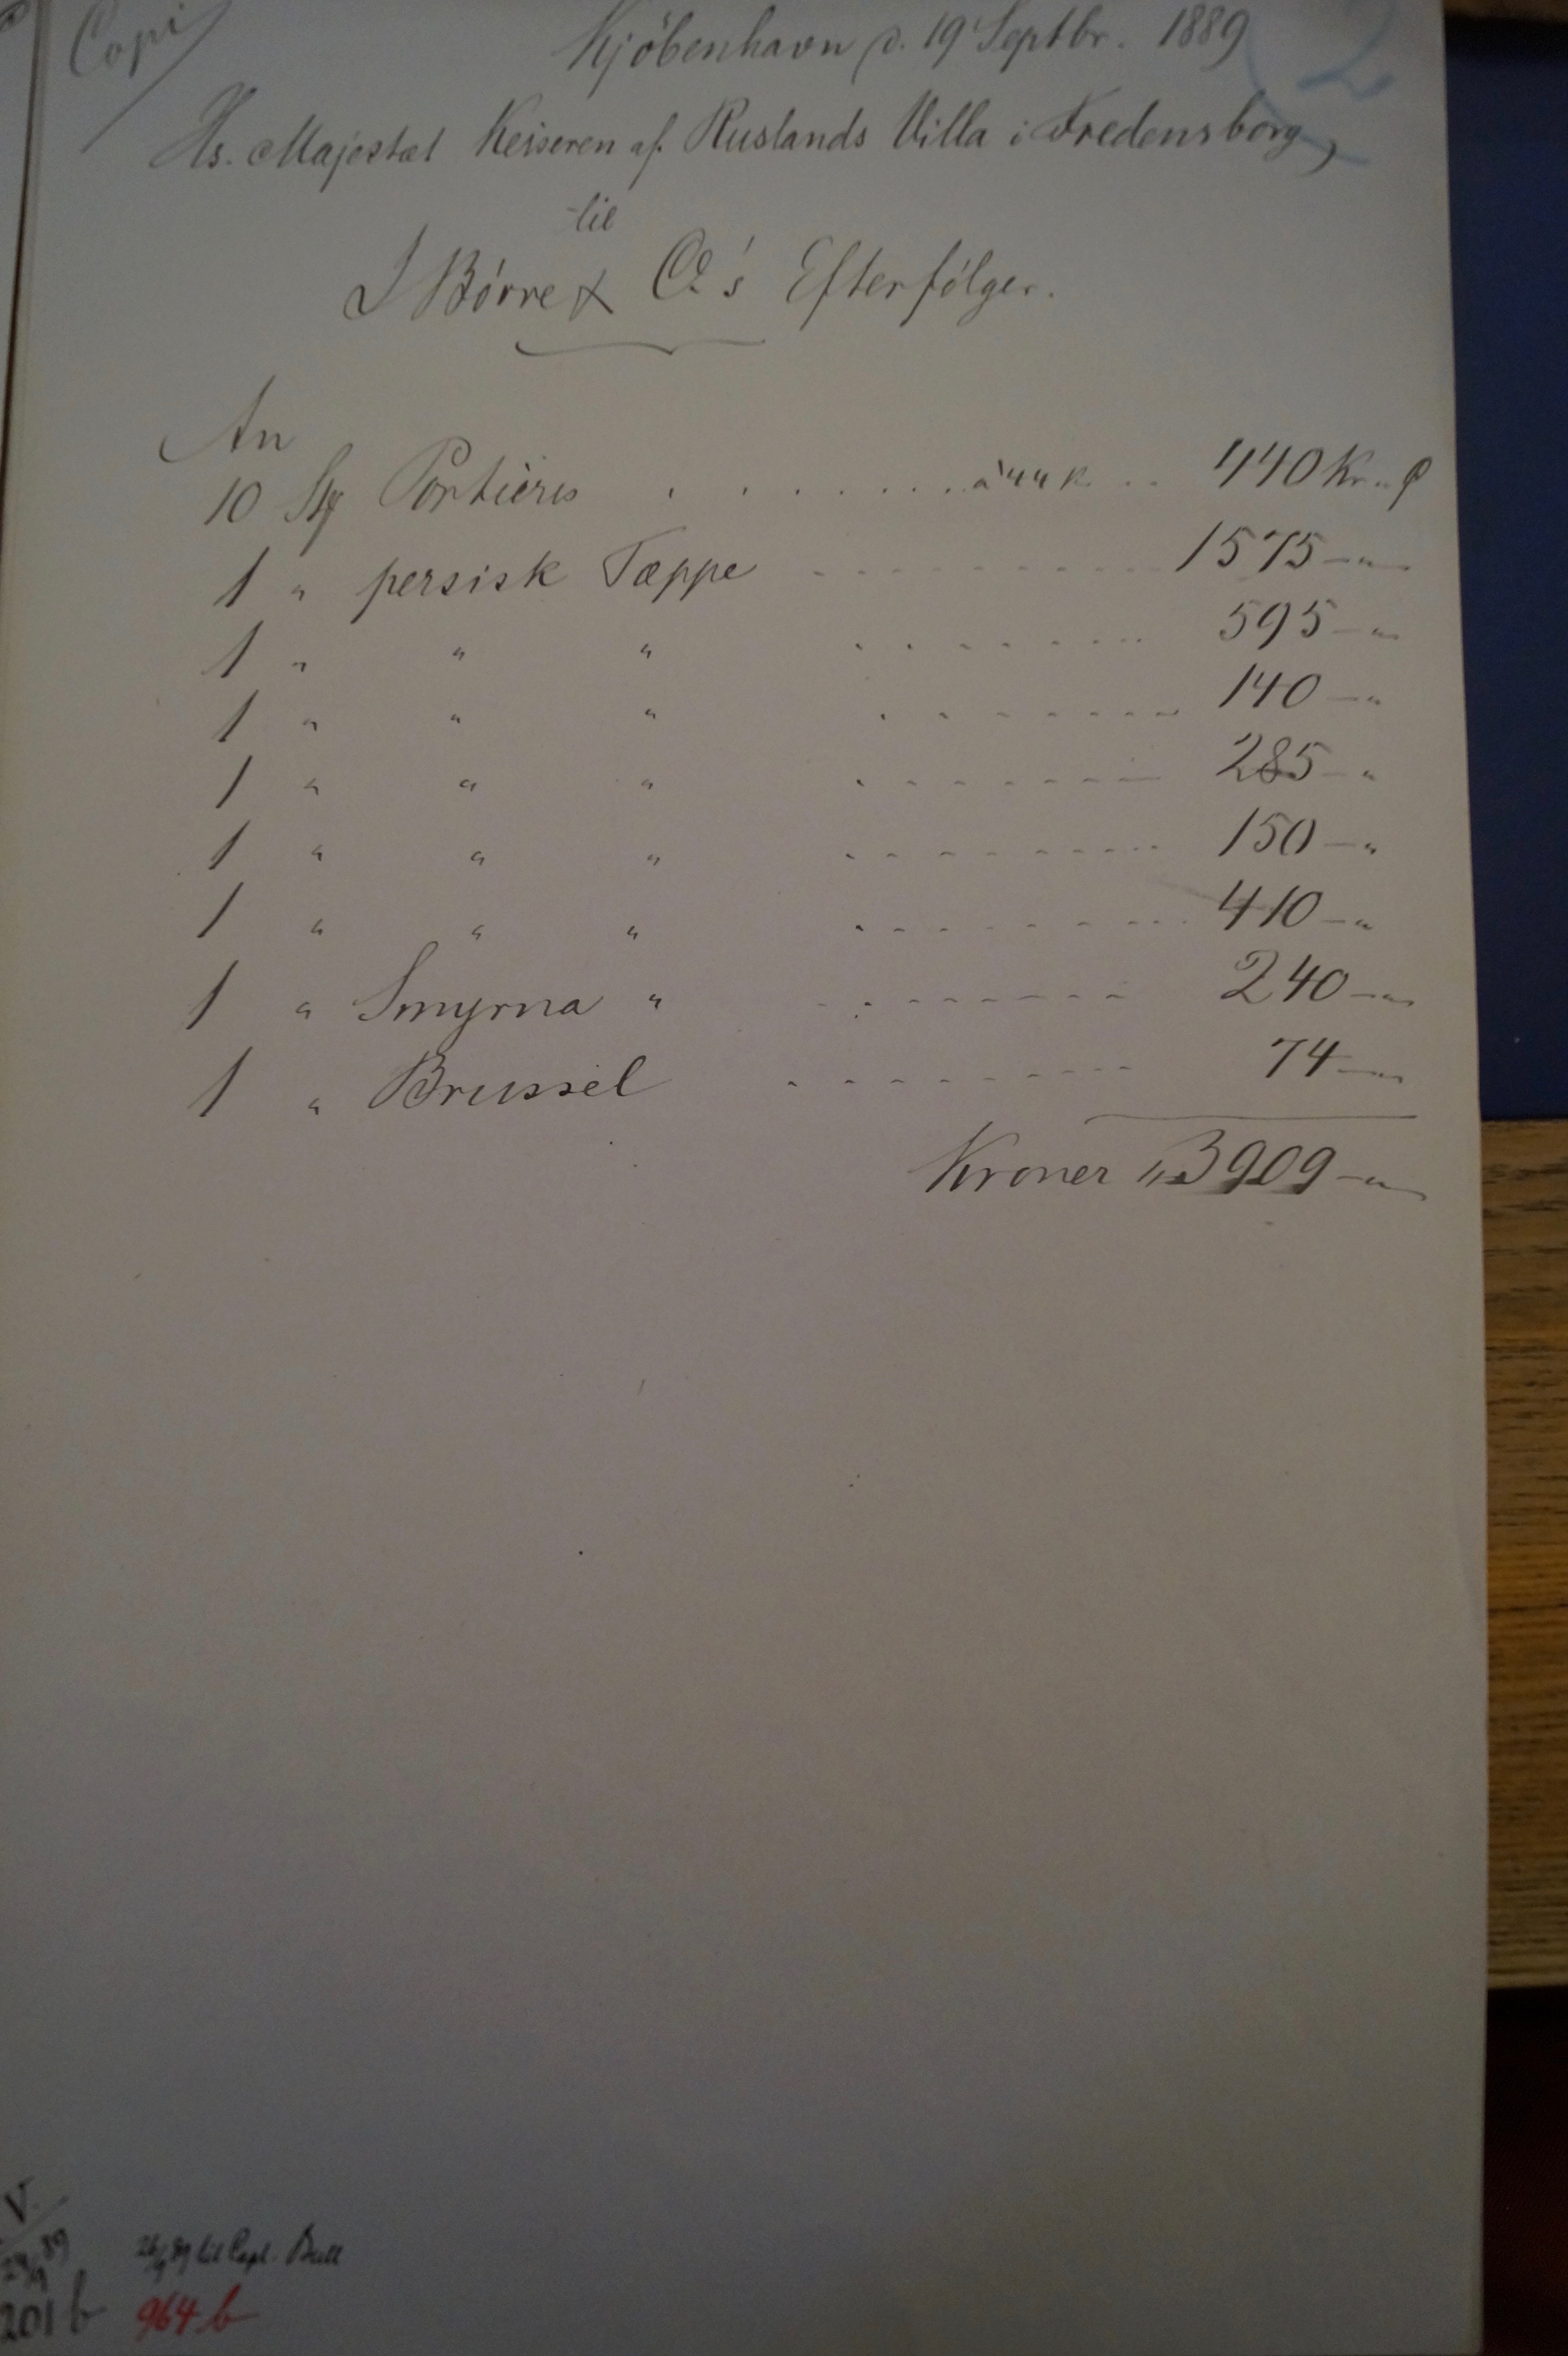 Copi
Kjöbenhavn d. 19 Septbr. 1889
2
Hs. Majestæt Keiseren af Ruslands Villa i Fredensborg,
til
I Börre & Co's Efterfölger.
An
10 Stk Portières . . . . . . . . . à 44 K .. 440 Kr. "
1 " persisk Tæppe - - - - - - - - - - 1575 — "
1 " " " . . - - - - - - 595 — "
1 " " " . . - - - - - - 140 — "
1 " " " . - - - - - - - 285 — "
1 " " " . - - - - - - - 150 — "
1 " " " . - - - - - - - 410 — "
1 " Smyrna " . - - - - - - - 240 — "
1 " Brussel . - - - - - - - 74 — "
Kroner „3909 — "
V.
89
26/9 89 til Capt. Bull
201 b 964 b